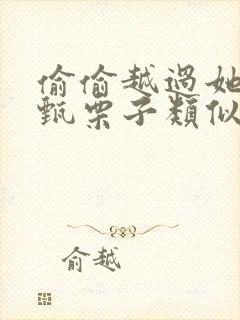 偷偷越過她
甄栗子類似
俞越